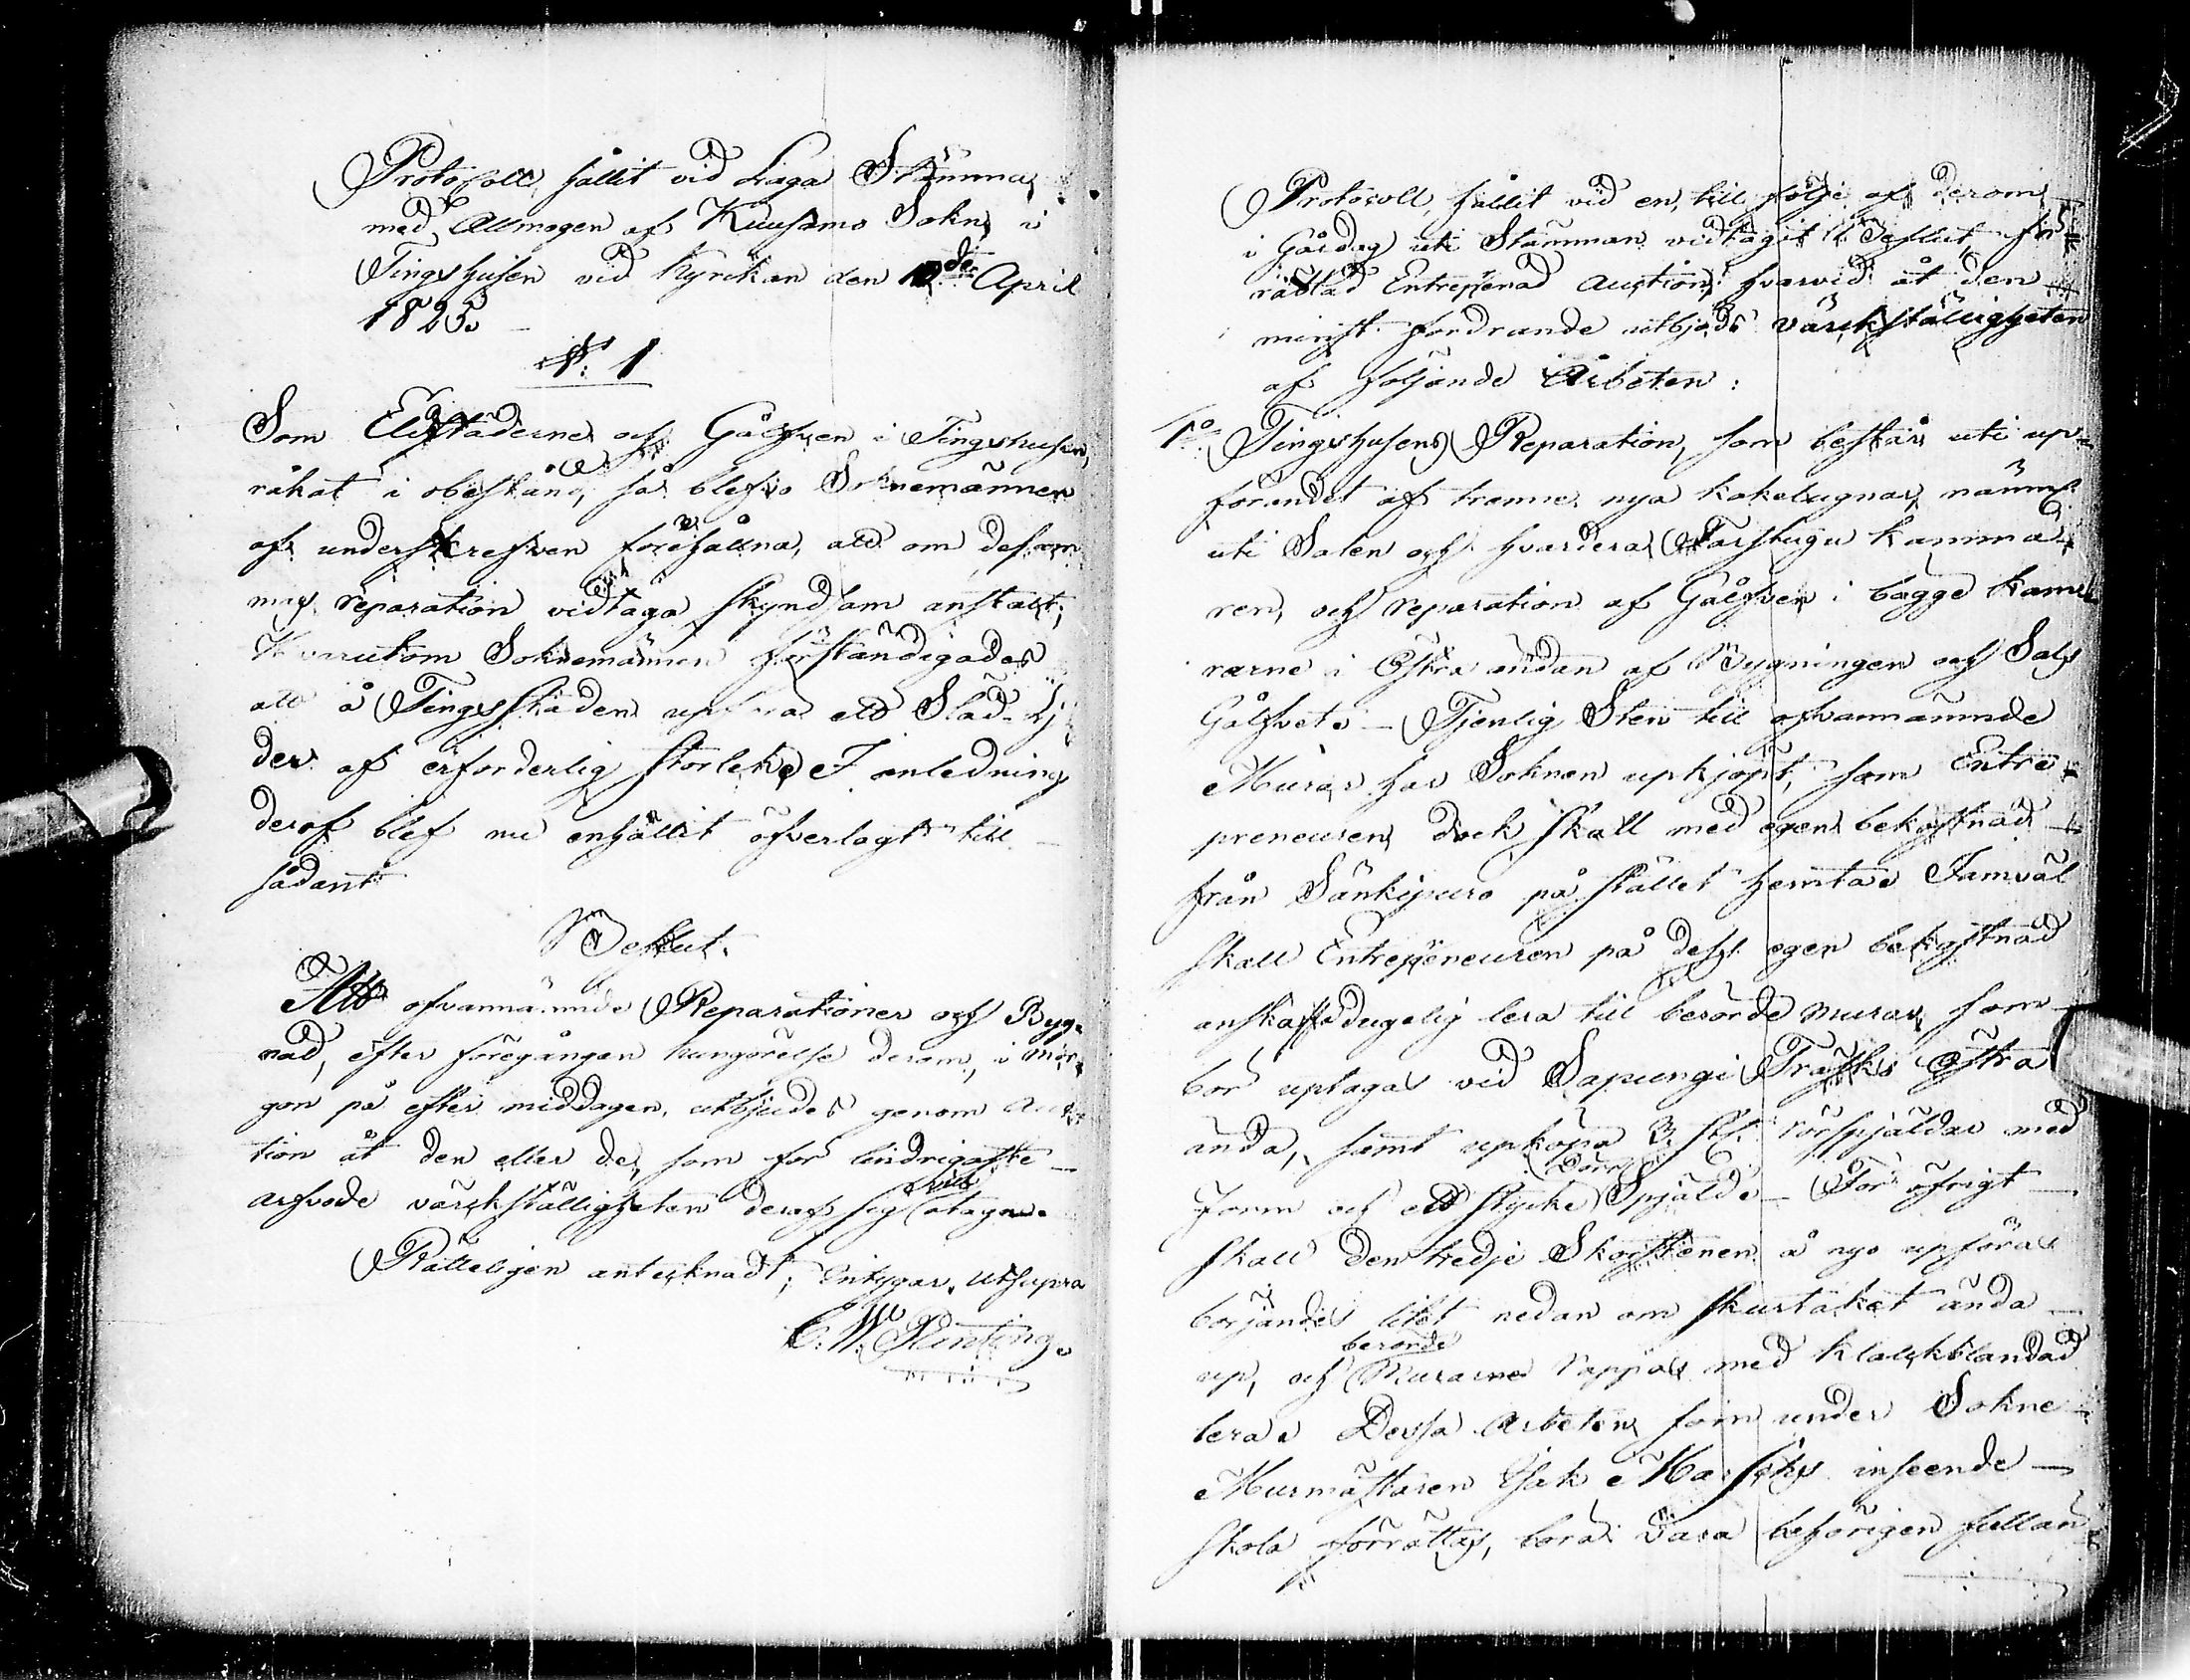 Protocoll, hållit vid Laga Stämma
med Allmogen af Kuusamo Sokn, i
Tingshusen vid kyrckan den 12de April
1825.
N: 1
Som Eldstäderne och Gålfven i Tingshusen,
råkat i obestånd, så blefvo Soknemännen
af underskrefven förehållna, att om dessam
mas reparation vidtaga skyndsam anstalt;
Hvarutom Soknemännen förständigades
att å Tingsstäden upföra ett Slad-Lj
der af erforderlig storlek. I anledning
deraf blef nu enhällit öfverlagt till
sådant
Beslut.
Att ofvannämnde Reparationer och Byg-
nad, efter föregången kungörelse derom, i mor-
gon på efter middagen, utbjudes genom Auc
tion åt den eller de, som för lindrigaste
arfvode värckställigheten deraf sig vill åtaga.
Rätteligen antecknadt; intygar. Utsupra
C. W. Planting.
Protocoll, hållit vid en, till följe af derom
i Gårdag uti Stämman vidtagit Beslut, för-
rättad Entrepenad Auction, hvarvid åt den
minst fordrande utbjöds värckställigheten
af följande Arbeten:
1o Tingshusens Reparation, som består uti up-
förandet af trenne nya kakelugnar, nämnl.
uti Salen och hvardera Farstugu kamma-
ren, och reparation af Gålfven i bägge kam
rarne i Östra ändan af Bygningen och Sals
Gålfvet. - Tjenlig Sten till ofvannämnde
Murar har Soknen upkjöpt, som Entre-
preneuren dock skall med egen bekostnad
från Sänkipuro på stället hemta. Jämväl
skall Entrepreneuren på dess egen bekostnad
anskaffa dugelig lera till berörde murar, som
bör uptagas vid Sapungi Träsks Östra
ända, samt upköpa 3 st. rörspjäldar med
Form och ett stycke Dörr Spjäld. - För öfrigt
skall den tredje Skorstenen å nyo upföras
börjandes litet nedan om skurtaket ända
up, och berörde Murarne rappas med kalckblandad
lera. Dessa Arbeten, som under Sokne
Murmästaren Isak inseende
skola förrättas, böra vara behörigen fullän